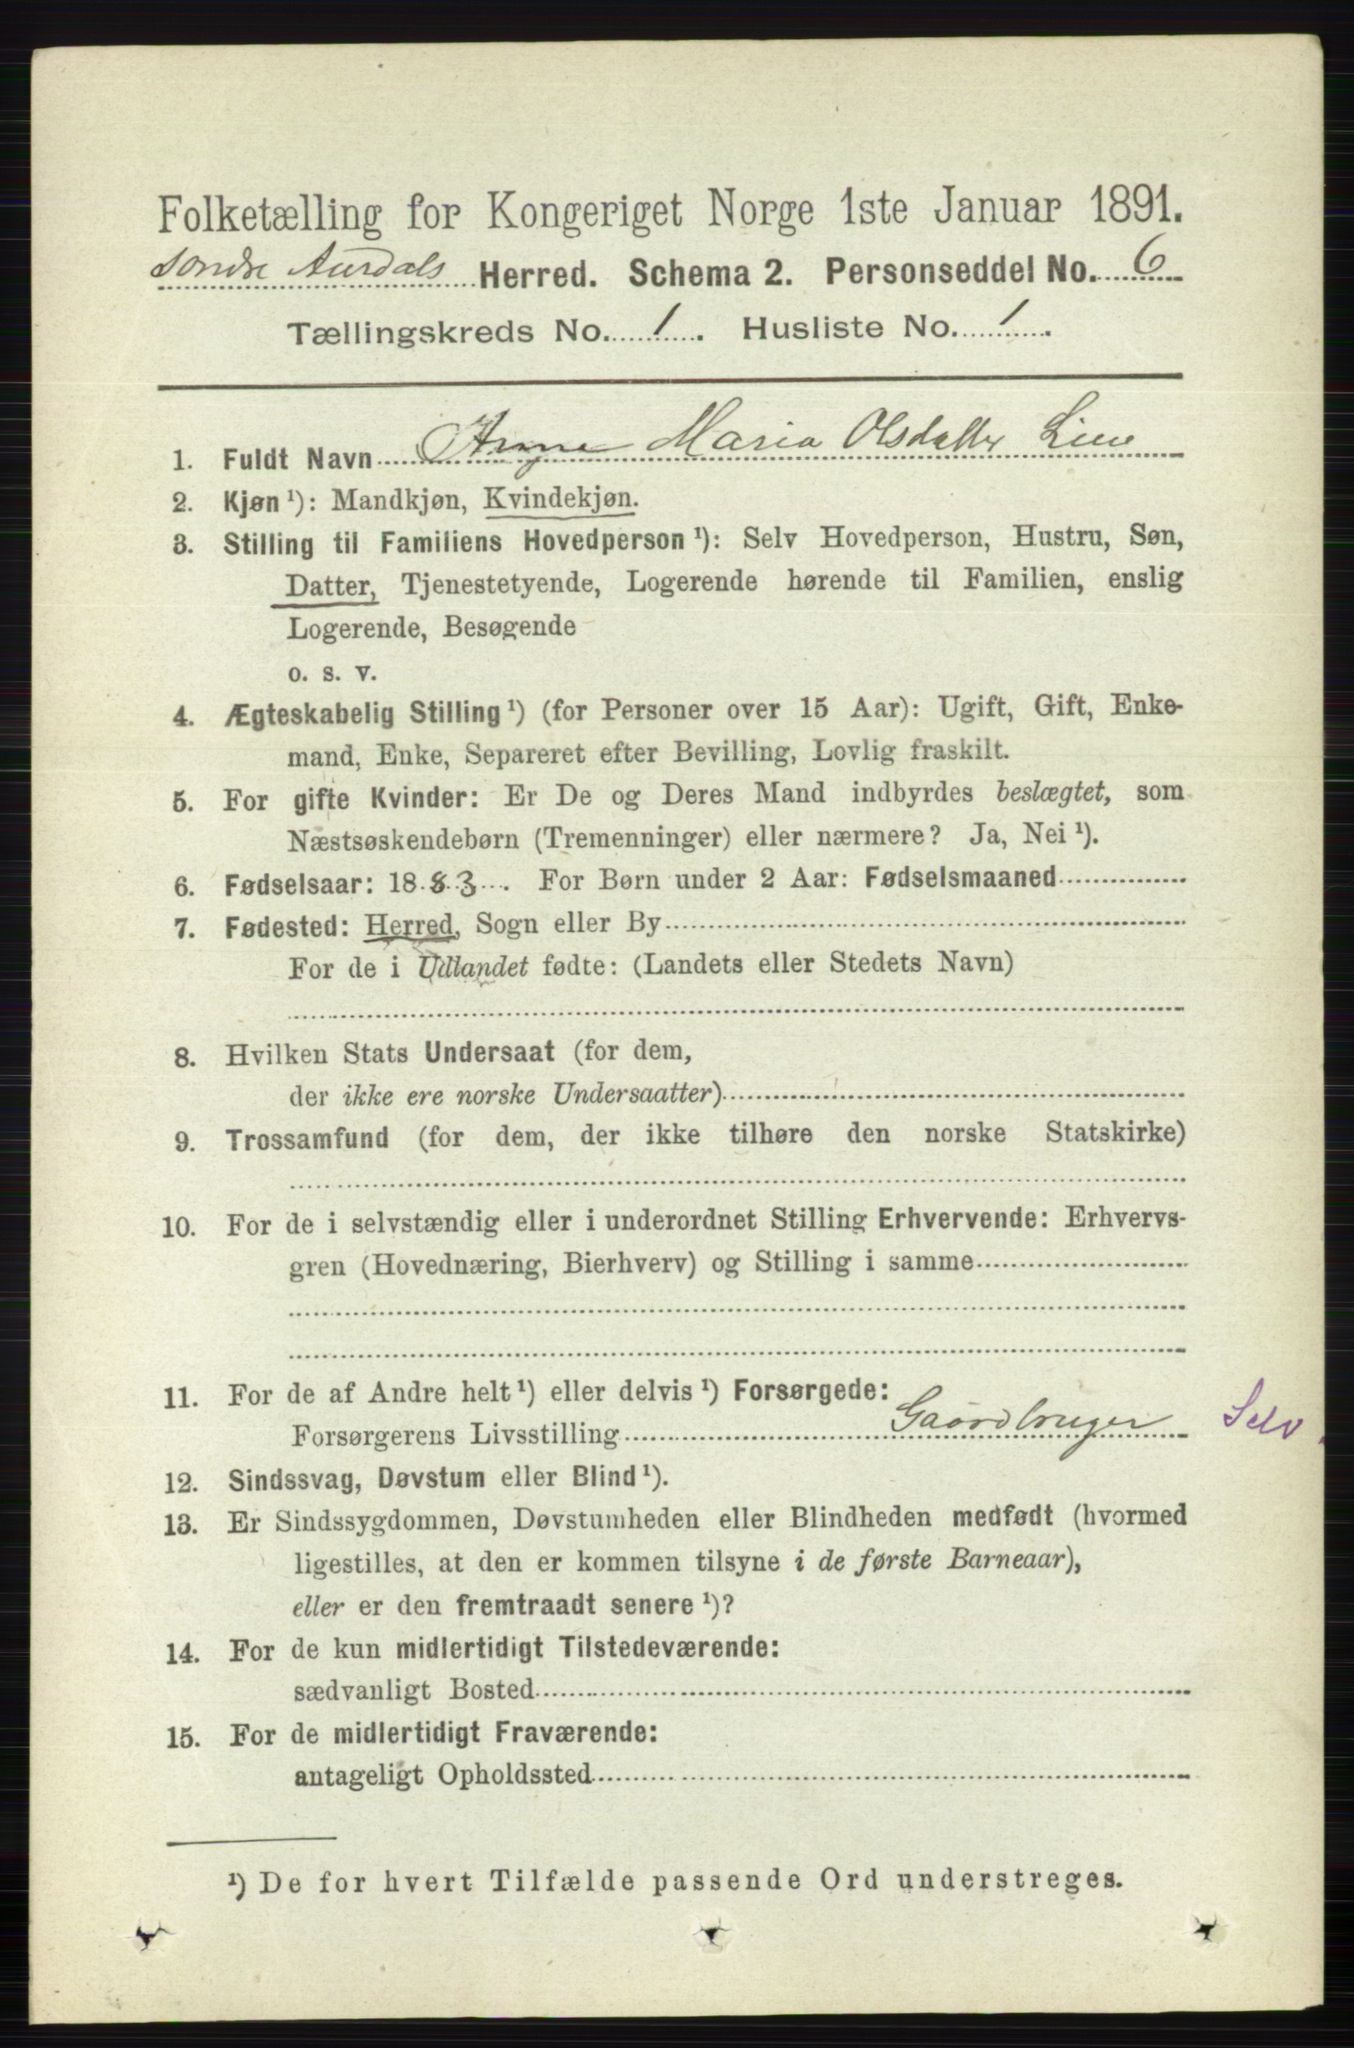 Folketælling for Kongeriget Norge 1ste Januar 1891.
Søndre Aurdals Herred. Schema 2. Personseddel No. 6
Tællingskreds No. 1. Husliste No. 1.
1. Fuldt Navn Anne Maria Olsdatter Lie
2. Kjøn ¹): Mandkjøn, Kvindekjøn.
3. Stilling til Familiens Hovedperson ¹): Selv Hovedperson, Hustru, Søn,
Datter, Tjenestetyende, Logerende hørende til Familien, enslig
Logerende, Besøgende
o. s. v.
4. Ægteskabelig Stilling ¹) (for Personer over 15 Aar): Ugift, Gift, Enke-
mand, Enke, Separeret efter Bevilling, Lovlig fraskilt.
5. For gifte Kvinder: Er De og Deres Mand indbyrdes beslægtet, som
Næstsøskendebørn (Tremenninger) eller nærmere? Ja, Nei ¹).
6. Fødselsaar: 1883. For Børn under 2 Aar: Fødselsmaaned
7. Fødested: Herred, Sogn eller By
For de i Udlandet fødte: (Landets eller Stedets Navn)
8. Hvilken Stats Undersaat (for dem,
der ikke ere norske Undersaatter)
9. Trossamfund (for dem, der ikke tilhøre den norske Statskirke)
10. For de i selvstændig eller i underordnet Stilling Erhvervende: Erhvervs-
gren (Hovednæring, Bierhverv) og Stilling i samme
11. For de af Andre helt ¹) eller delvis ¹) Forsørgede:
Forsørgerens Livsstilling Gaardbruger Selv.
12. Sindssvag, Døvstum eller Blind ¹).
13. Er Sindssygdommen, Døvstumheden eller Blindheden medfødt (hvormed
ligestilles, at den er kommen tilsyne i de første Barneaar),
eller er den fremtraadt senere ¹)?
14. For de kun midlertidigt Tilstedeværende:
sædvanligt Bosted
15. For de midlertidigt Fraværende:
antageligt Opholdssted
¹) De for hvert Tilfælde passende Ord understreges.